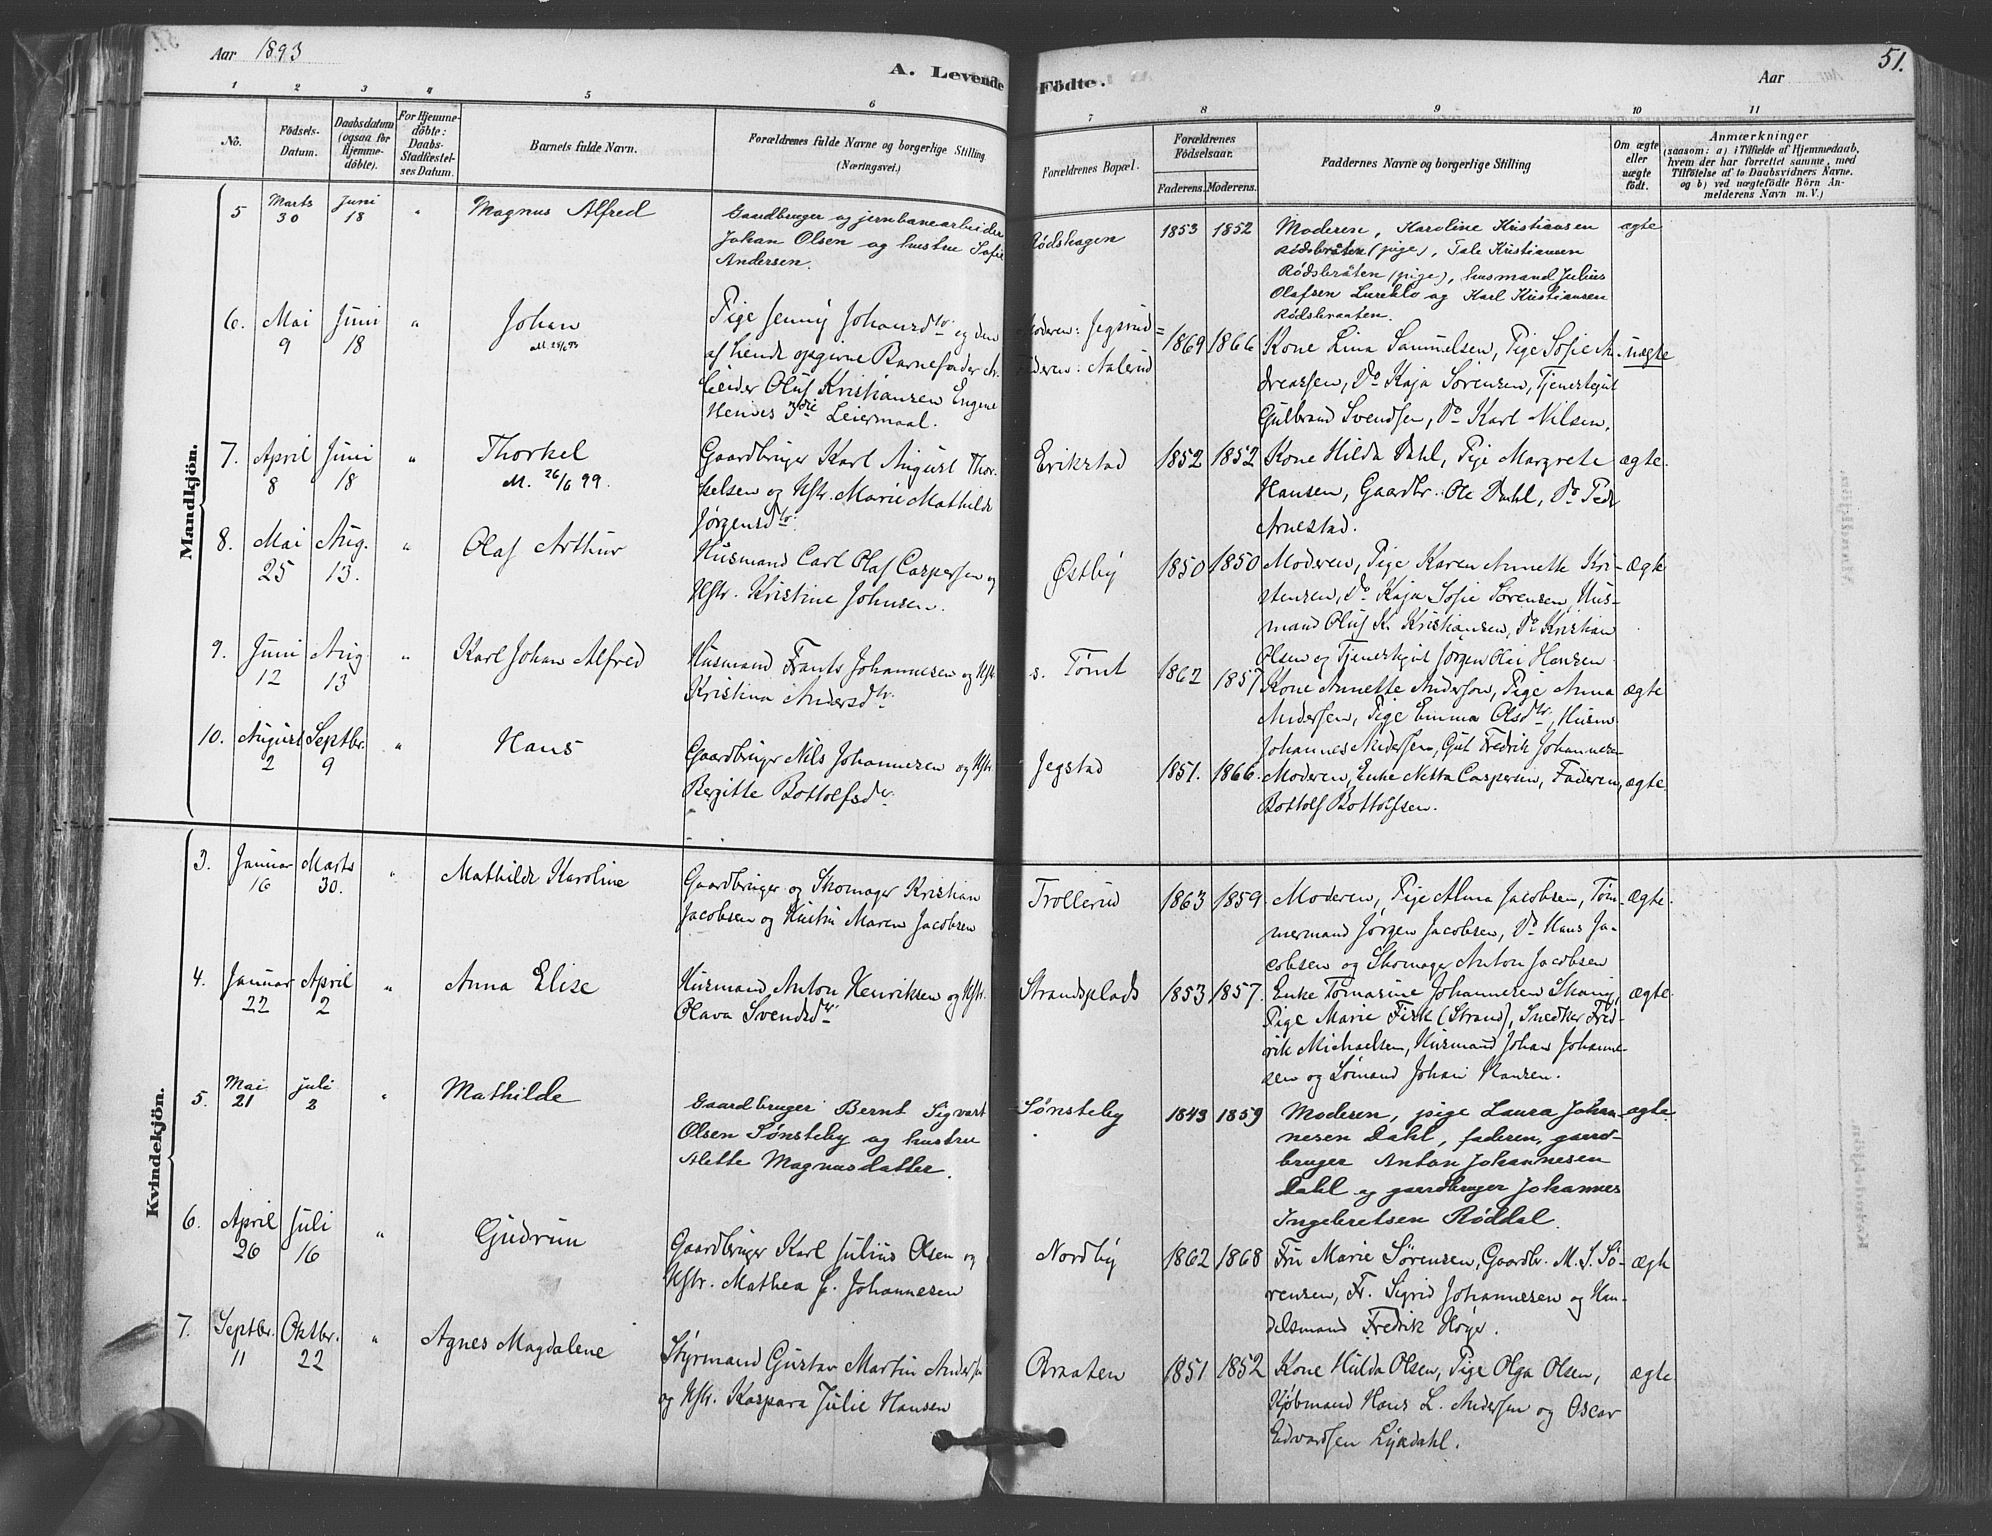 Aar 1893
A. Levende Födte.
Aar
51.
1 2 3 4 5 6 7 8 9 10 11
No.
Födsels-
Datum.
Daabsdatum
(ogsaa for
Hjemme-
döbte).
For Hjemme-
döbte:
Daabs-
Stadfæstel-
ses Datum.
Barnets fulde Navn.
Forældrenes fulde Navne og borgerlige Stilling
(Næringsvei.)
Forældrenes Bopæl.
Forældrenes
Födselsaar.
Faderens. Moderens.
Faddernes Navne og borgerlige Stilling
Om ægte
eller
uægte
födt.
Anmærkninger
(saasom: a) i Tilfælde af Hjemmedaab,
hvem der har forrettet samme, med
Tilföielse af to Daabsvidners Navne.
og b) ved uægtefödte Börn An-
melderens Navn m. V.)
Mandkjön.
5 Marts
30
Juni
18
"
Magnus Alfred
Gaardbruger og jernbanearbeider
Johan Olsen og hustru Sofie
Andersen.
Rødshagen
1853 1852
Moderen, Karoline Kristiansen
Rødsbråten (pige), Tale Kristiansen
Rødsbråten (pige), husmand Julius
Olafsen og Karl Kristiansen
Rødsbraaten.
ægte
6. Mai
9
Juni
18
"
Johan
Pige Jenny Johansdtr og den
af hende opgivne Barnefader Ar-
beider Oluf Kristiansen Engene
Hennes Leiermaal.
Moderen: Jegsrud
Faderen:
1869 1866
Kone Lina Samuelsen, Pige Sofie An-
dreassen, Do Kaja Sørensen, Tjenestgut
Gulbrand Svendsen, Do Karl Nilsen.
uægte
7. April
8
Juni
18
"
Thorkel
M. 26/6 99.
Gaardbruger Karl August Thor-
kelsen og Hstr. Marie Mathilde
Jørgensdtr.
Erikstad
1852 1852
Kone Hilda Dahl, Pige Margrete
Hansen, Gaardbr. Ole Dahl, Do Peder
Arnestad.
ægte.
8. Mai
25
Aug.
13.
"
Olaf Arthur
Husmand Carl Olaf Caspersen og
Hstr. Kristine Johnsen.
Østby
1850 1850
Moderen, Pige Karen Annette Kri-
stensen, Do Kaja Sofie Sørensen, Hus-
mand Oluf K. Kristiansen, Do Kristian
Olsen og Tjenestgut Jørgen Olai Hansen
ægte
9. Juni
12
Aug.
13
"
Karl Johan Alfred
Husmand Frants Johannesen og Hstr
Kristina Andersdtr.
s. Tomt
1862 1857
Kone Annette Andersen, Pige Anna
Andersen, Pige Emma Olsdtr, Husm.
Johannes Andersen, Gut Fredrik Johannese-
ægte
10. August
2
Septbr.
9
"
Hans
Gaardbruger Nils Johannesen og Hstr.
Bergitte Bottolfsdtr.
Jegstad
1851. 1866.
Moderen, Enke Netta Caspersen, Faderen,
Bottolf Bottolfsen.
ægte
Kvindekjön.
3. Januar
16
Marts
30.
"
Mathilde Karoline
Gaardbruger og Skomager Kristian
Jacobsen og Hustru Maren Jacobsen
Trollerud
1863 1859
Moderen, Pige Alma Jacobsen, Tøm-
mermand Jørgen Jacobsen, Do Hans Ja-
cobsen og Skomager Anton Jacobsen
ægte.
4. Januar
22
April
2
"
Anna Elise
Husmand Anton Henriksen og Hstr.
Olava Svendsdtr
Strandsplads
1853 1857.
Enke Tomasine Johannesen Skaug,
Pige Marie Fisk (Strand), Snedker Fred-
rik Michaelsen, Husmand Johan Johanne-
sen og Sømand Johan Hansen.
ægte.
5. Mai
21
juli
2
"
Mathilde
Gaardbruger Bernt Sigvart
Olsen Sønsteby og hustru
Alette Magnusdatter.
Sønsteby
1843 1859
Moderen, pige Laura Johan-
nesen Dahl, faderen, gaard-
bruger Anton Johannesen
Dahl og gaardbruger Johannes
Ingebretsen Røddal.
ægte.
6. April
26
Juli
16
"
Gudrun
Gaardbruger Karl Julius Olsen og
Hstr. Mathea J. Johannesen
Nordby
1862 1868
Fru Marie Sørensen, Gaardbr. M. S. Sø-
rensen, Fr. Sigrid Johannesen og Han-
delsmand Fredrik Høye.
ægte
7. Septbr.
11
Oktbr.
22
"
Agnes Magdalene
Styrmand Gustav Martin Andersen
og Hstr. Kaspara Julie Hansen
Braaten
1851 1852
Kone Hulda Olsen, Pige Olga Olsen,
Kjøbmand Hans L. Andersen og Oscar
Edvardsen Lykdahl.
ægte